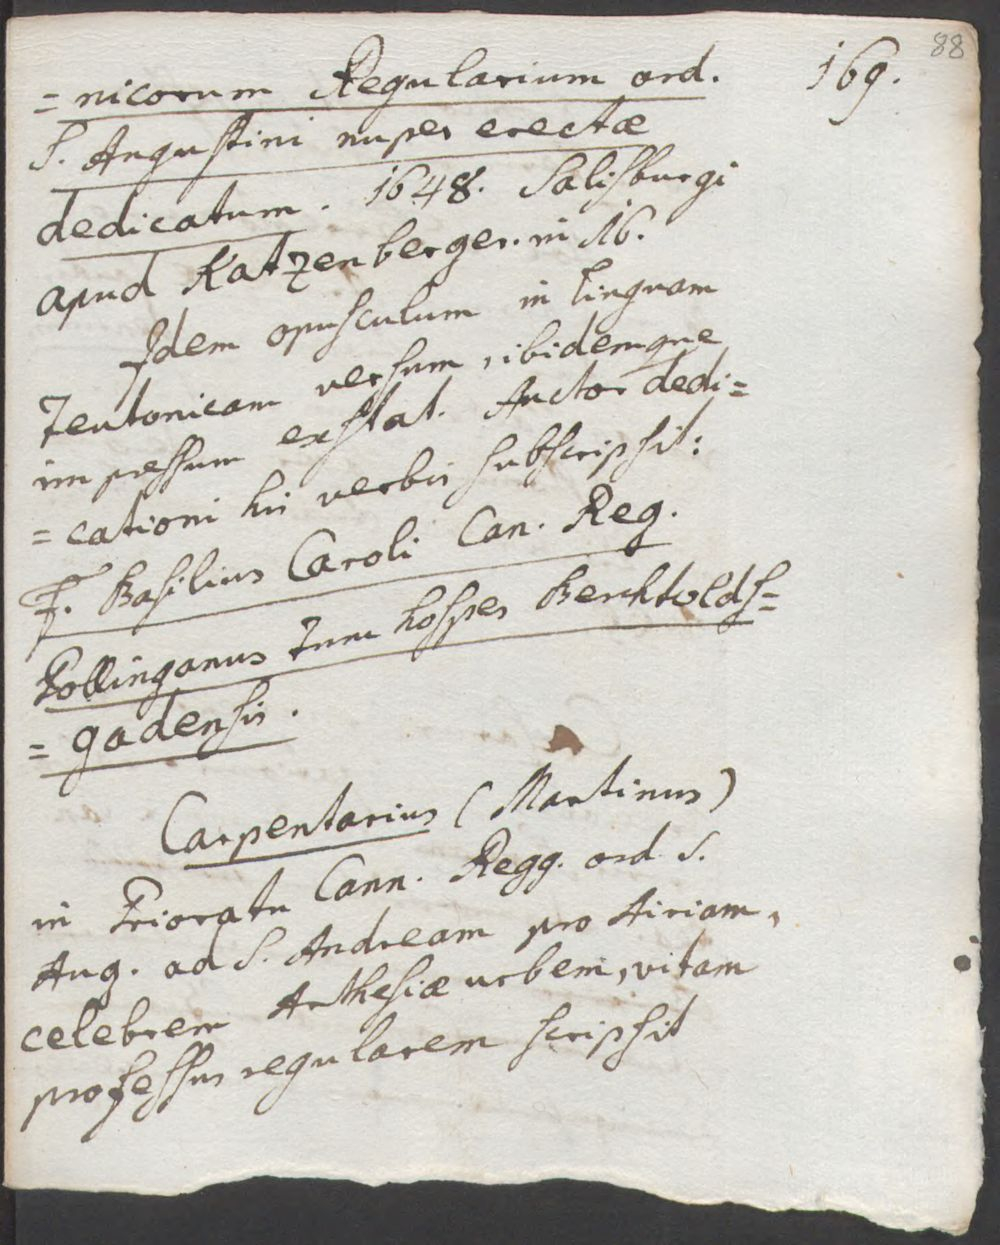 88
169.
= nicorum Regularium ord.
S. Augustini nuper erectæ
dedicatum. 1648. Salisburgi
apud Katzenberger. in 16.
Idem opusculum in linguam
Teutonicam versum, ibidemque
impressum exstat. Auctor dedi=
= cationi his verbis subscripsit:
F. Basilius Caroli Can. Reg.
Pollinganus Tum hospes Berchtolds=
= gadensis.
Carpentarius (Martinus)
in Prioratu Cann. Regg. ord. S.
Aug. ad S. Andream pro Airiam,
celebrem Arthesiæ urbem, vitam
professus regularem scripsit